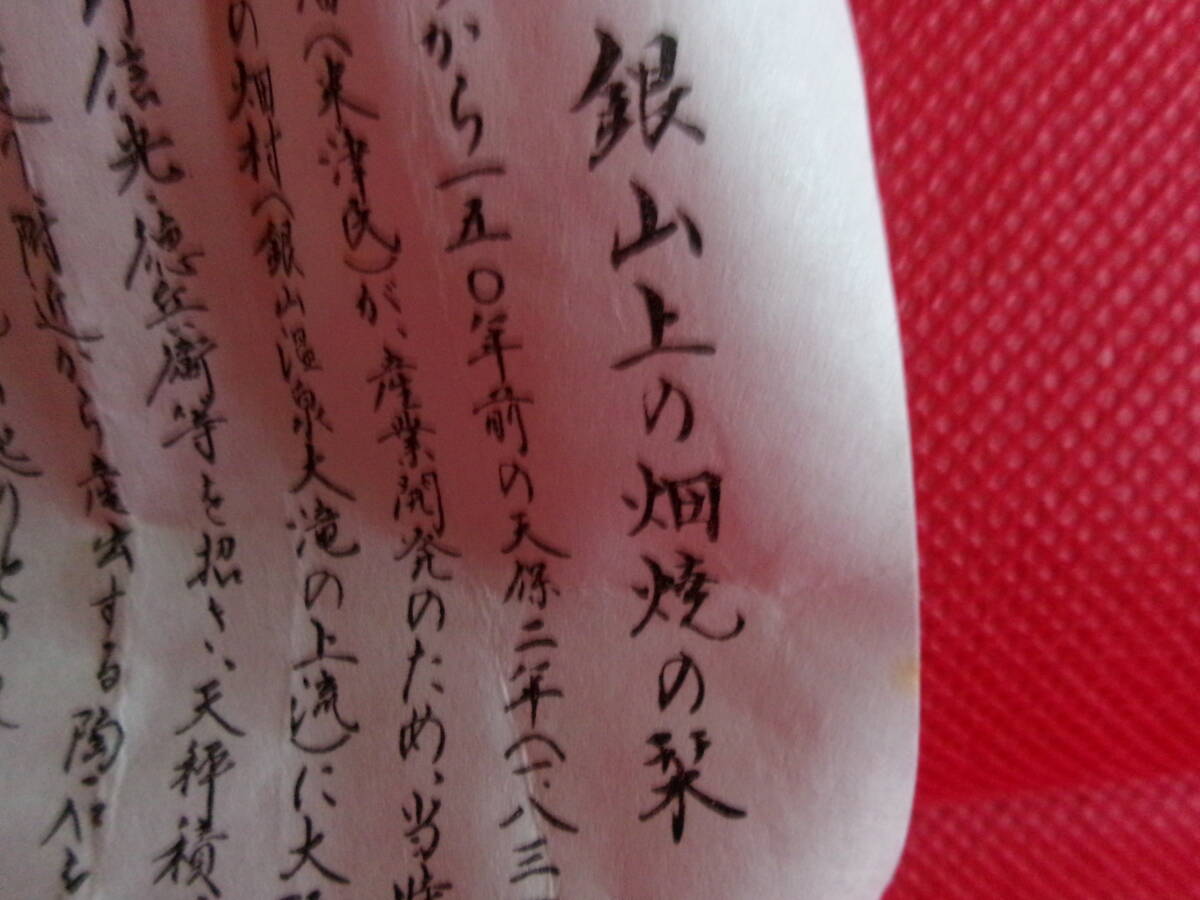 銀山上の畑焼の栞
から一五〇年前の天保二年(一八三
(米津氏)が、産業開発のため、当時
の畑村(銀山温泉大滝の上流)に大
信光、徳兵衛等を招き、天秤積
附近から産出する陶石を